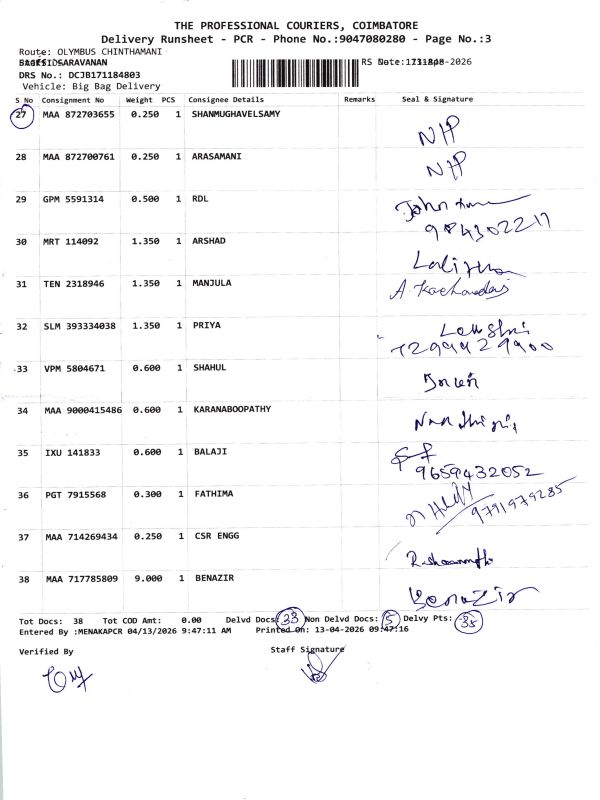 THE PROFESSIONAL COURIERS, COIMBATORE
Delivery Runsheet - PCR - Phone No.:9047080280 - Page No.:3
Route: OLYMBUS CHINTHAMANI
SARAVANAN
DRS No.: DCJB171184803
Vehicle: Big Bag Delivery
S No Consignment No Weight PCS Consignee Details Remarks Seal & Signature
27 MAA 872703655 0.250 1 SHANMUGHAVELSAMY
28 MAA 872700761 0.250 1 ARASAMANI
29 GPM 5591314 0.500 1 RDL
30 MRT 114092 1.350 1 ARSHAD
31 TEN 2318946 1.350 1 MANJULA
32 SLM 393334038 1.350 1 PRIYA
7299929900
33 VPM 5804671 0.600 1 SHAHUL
34 MAA 9000415486 0.600 1 KARANABOOPATHY
35 IXU 141833 0.600 1 BALAJI
9659432052
36 PGT 7915568 0.300 1 FATHIMA
9791979285
37 MAA 714269434 0.250 1 CSR ENGG
38 MAA 717785809 9.000 1 BENAZIR Benazir
Tot Docs: 38 Tot COD Amt: 0.00 Delvd Docs: 33 Non Delvd Docs: 5 Delvy Pts: 35
Entered By :MENAKAPCR 04/13/2026 9:47:11 AM Printed On: 13-04-2026 09:47:16
Verified By Staff Signature